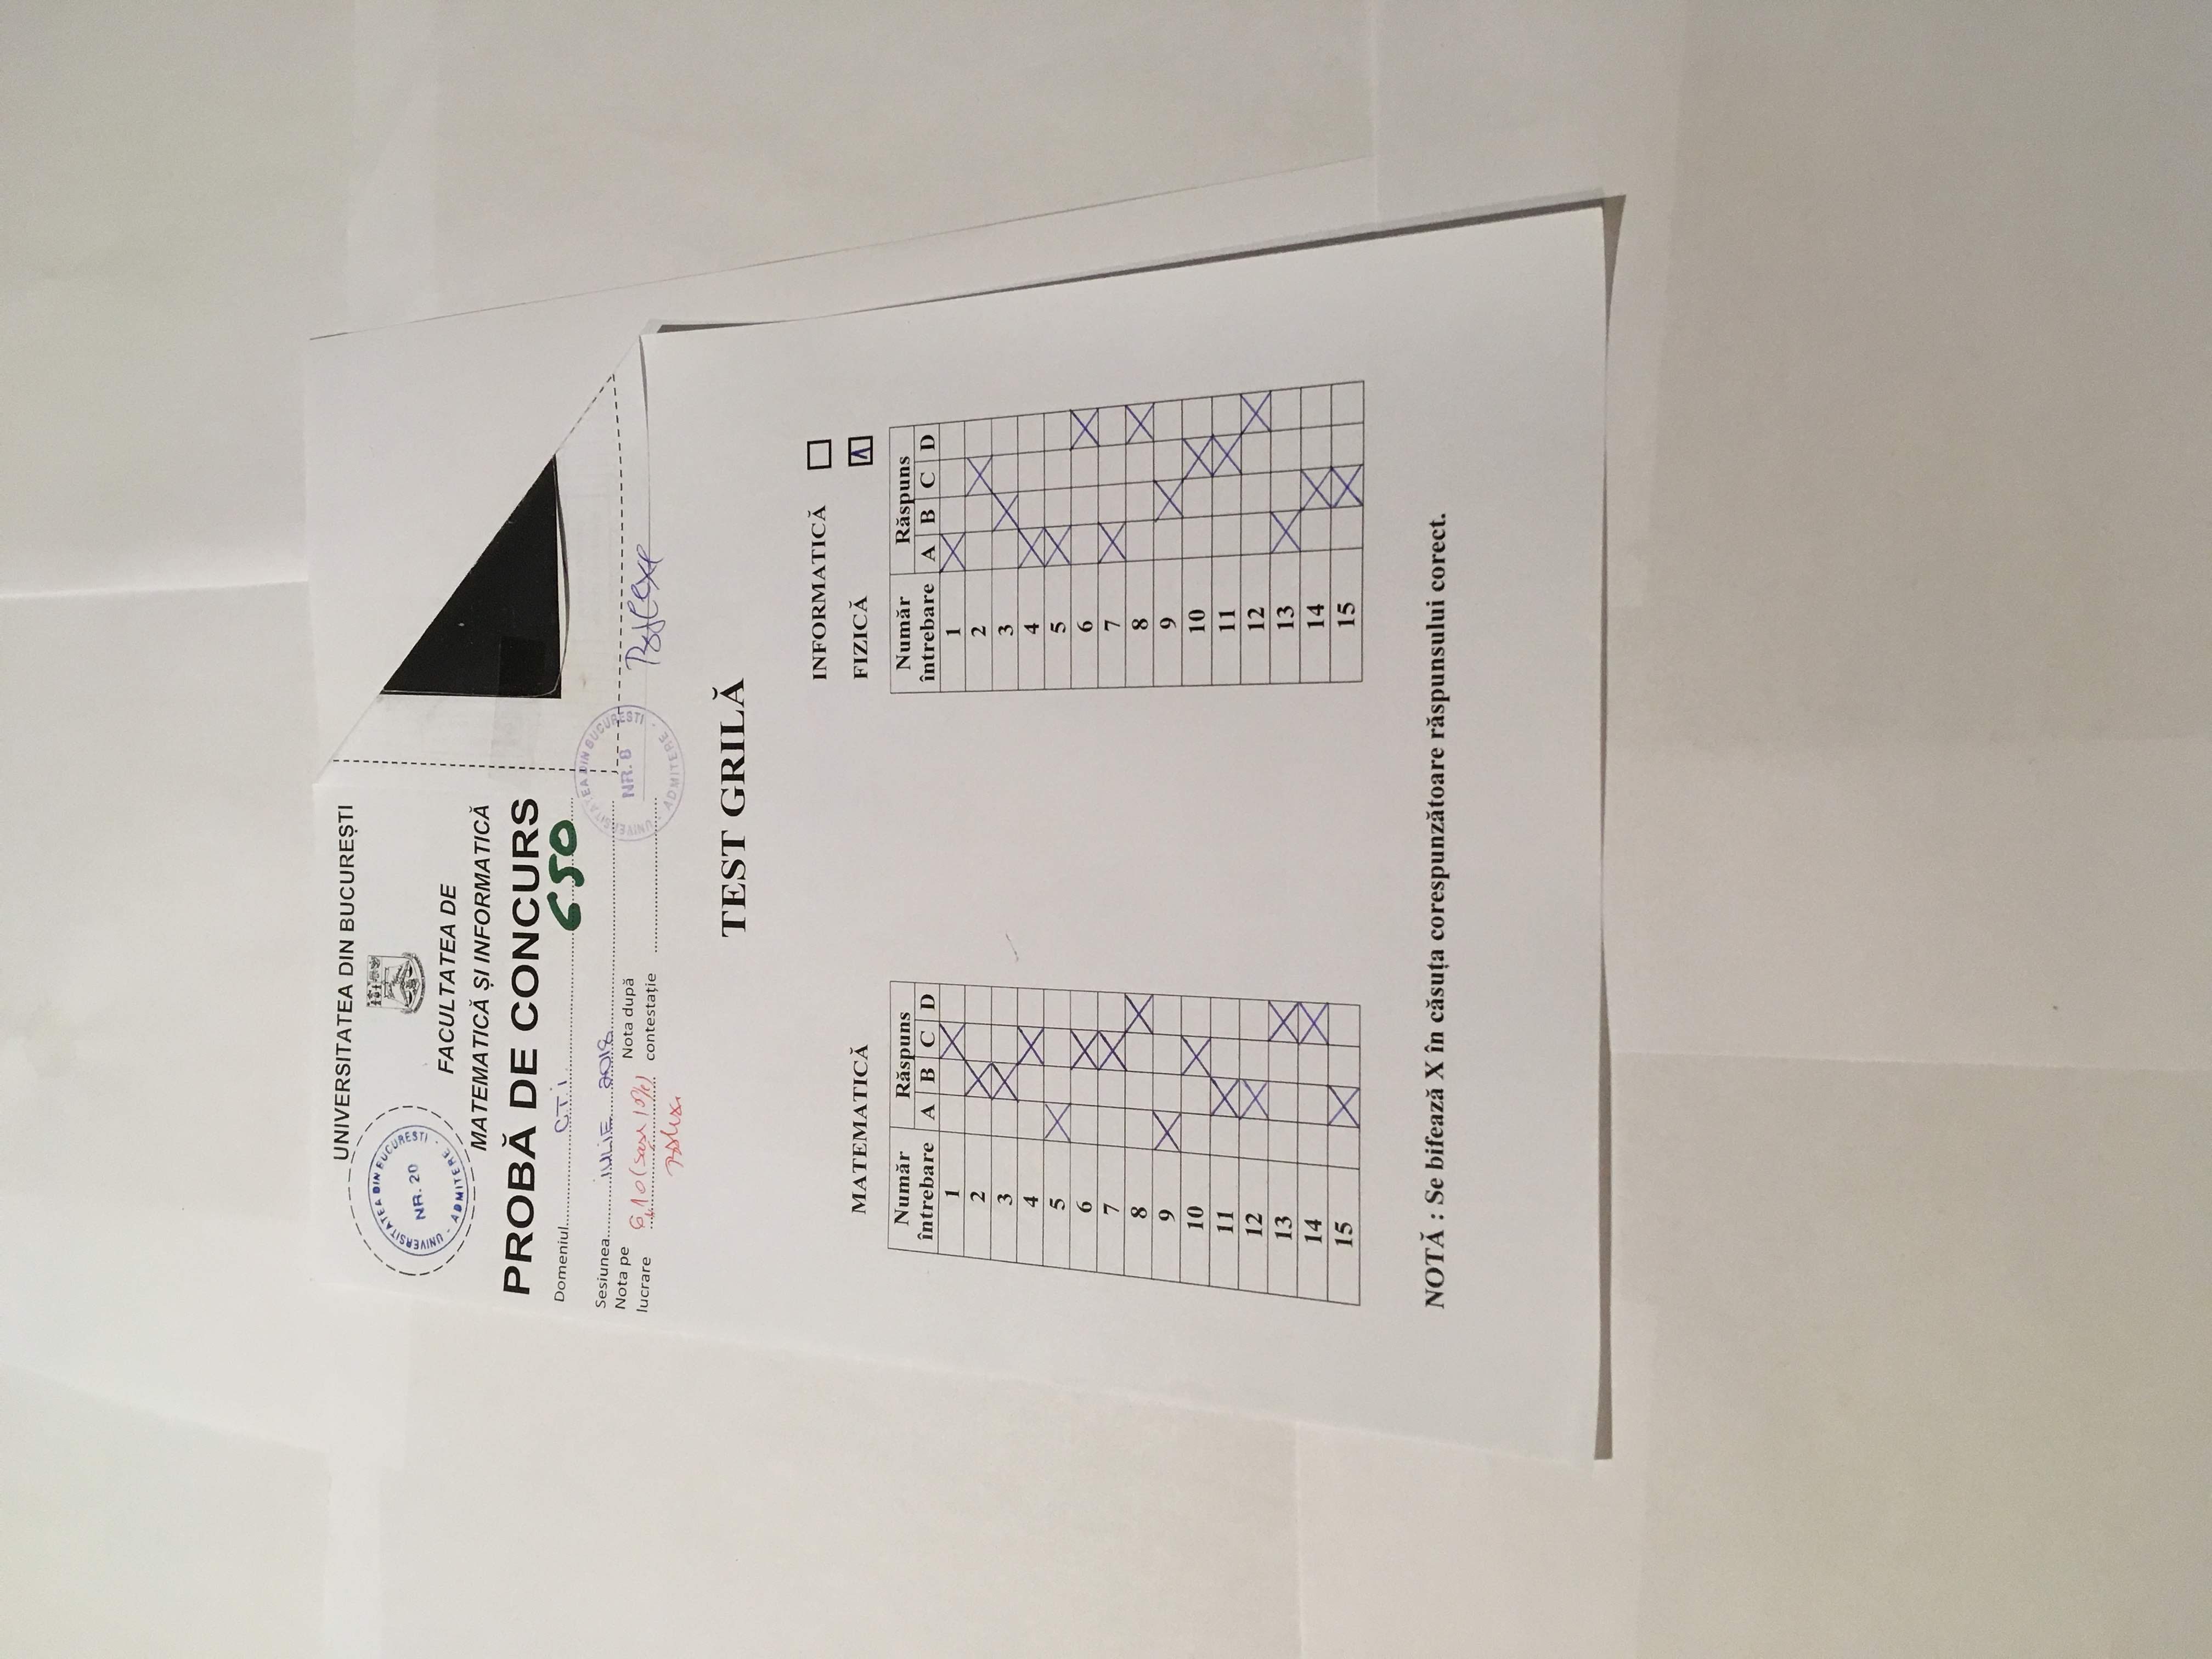 UNIVERSITATEA DIN BUCUREȘTI
UNIVERSITATEA DIN BUCURESTI
NR. 20
- ADMITERE -
FACULTATEA DE
MATEMATICĂ ȘI INFORMATICĂ
PROBĂ DE CONCURS
Domeniul C.T.I. 650
Sesiunea IULIE 2018
Nota pe lucrare 6,10 (șase 10%)
Nota după contestație
UNIVERSITATEA DIN BUCURESTI
NR. 8
- ADMITERE -
TEST GRILĂ
MATEMATICĂ
Număr întrebare Răspuns
A B C D
1 X
2 X
3 X
4 X
5 X
6 X
7 X
8 X
9 X
10 X
11 X
12 X
13 X
14 X
15 X
INFORMATICĂ
FIZICĂ
Număr întrebare Răspuns
A B C D
1 X
2 X
3 X
4 X
5 X
6 X
7 X
8 X
9 X
10 X
11 X
12 X
13 X
14 X
15 X
NOTĂ : Se bifează X în căsuța corespunzătoare răspunsului corect.